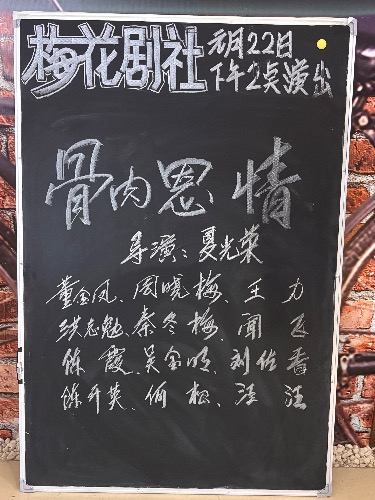 梅花剧社
元月22日
下午2点演出
骨肉恩情
导演：夏光荣
董金凤、周晓梅、王力
洪志勉、秦冬梅、闻飞
陈霞、吴金明、刘佑香
陈升英、何松、汪汪